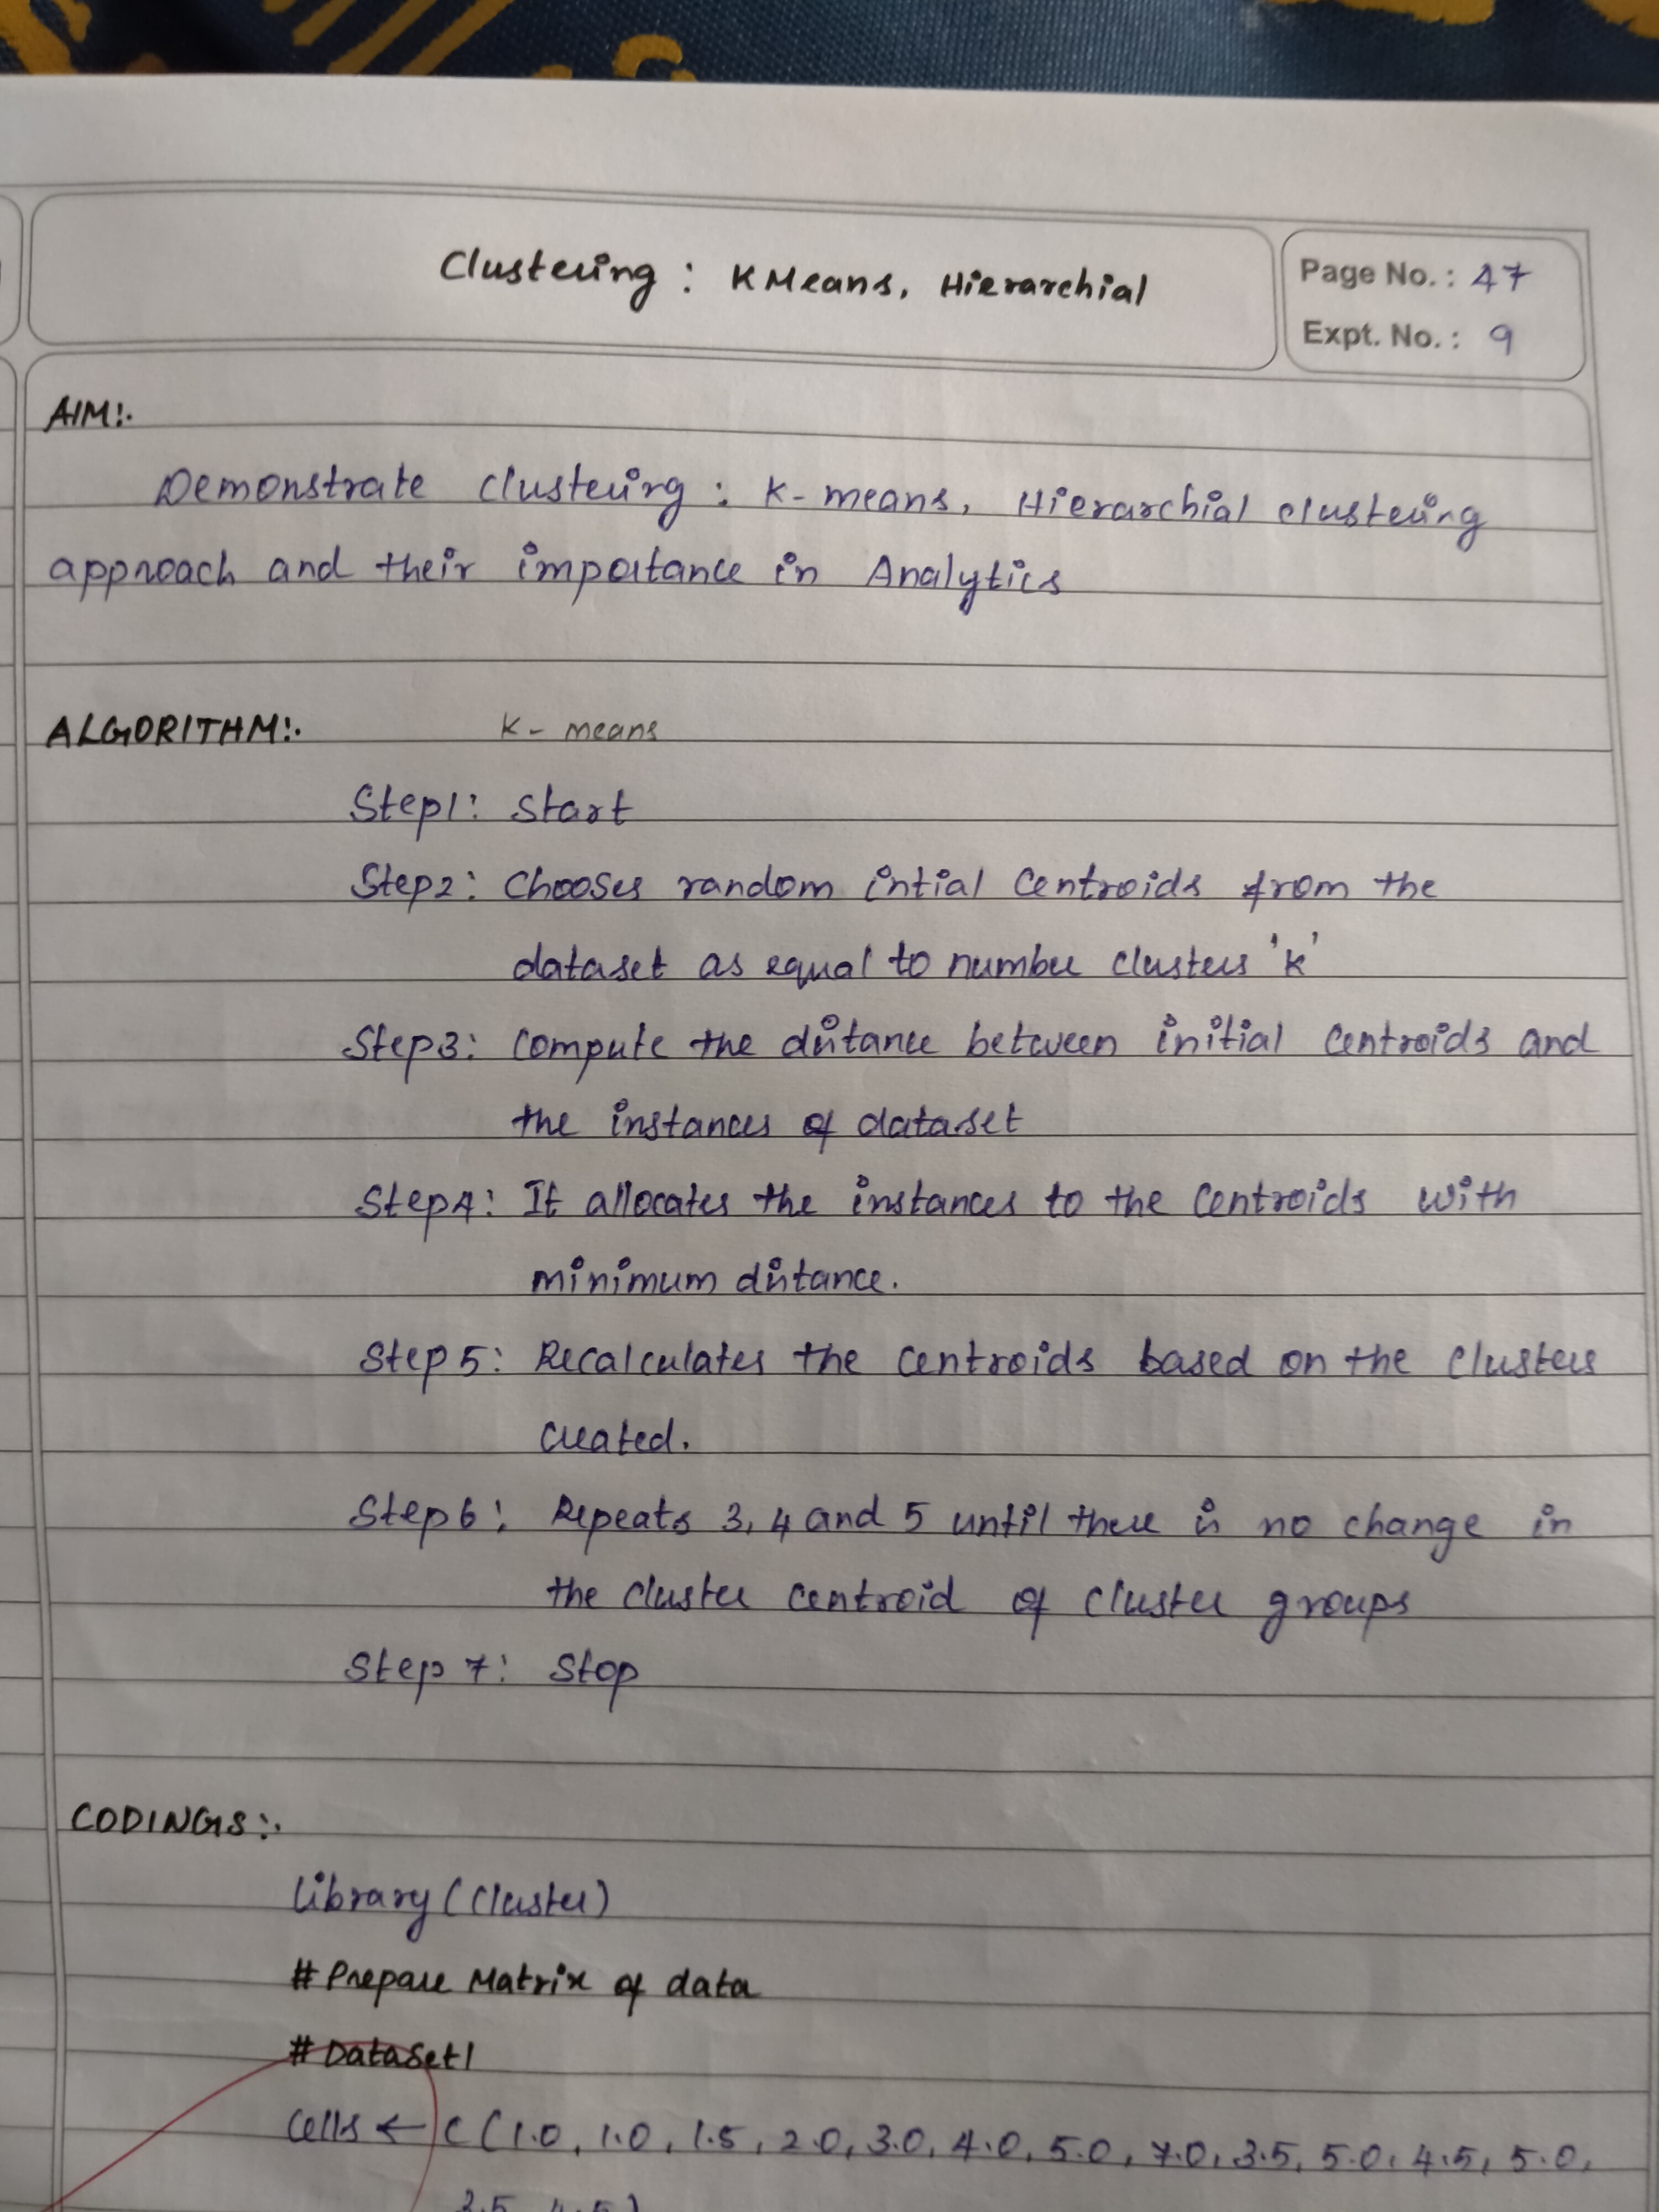 Clustering : KMeans, Hierarchial
Page No. : 47
Expt. No. : 9
AIM:.
Demonstrate clustering : K-means, Hierarchial clustering
approach and their importance in Analytics
ALGORITHM:. K - means
Step1: Start
Step2: Chooses random intial Centroids from the
dataset as equal to number clusters 'k'
Step3: Compute the distance between initial Centroids and
the instances of dataset
Step4: It allocates the instances to the Centroids with
minimum distance.
Step 5: Recalculates the Centroids based on the Clusters
created.
Step 6: Repeats 3, 4 and 5 until there is no change in
the cluster centroid of cluster groups
Step 7: Stop
CODINGS:.
library (cluster)
# Prepare Matrix of data
# DataSet1
Cells ← C (1.0, 1.0, 1.5, 2.0, 3.0, 4.0, 5.0, 7.0, 3.5, 5.0, 4.5, 5.0,
3.5, 4.5)